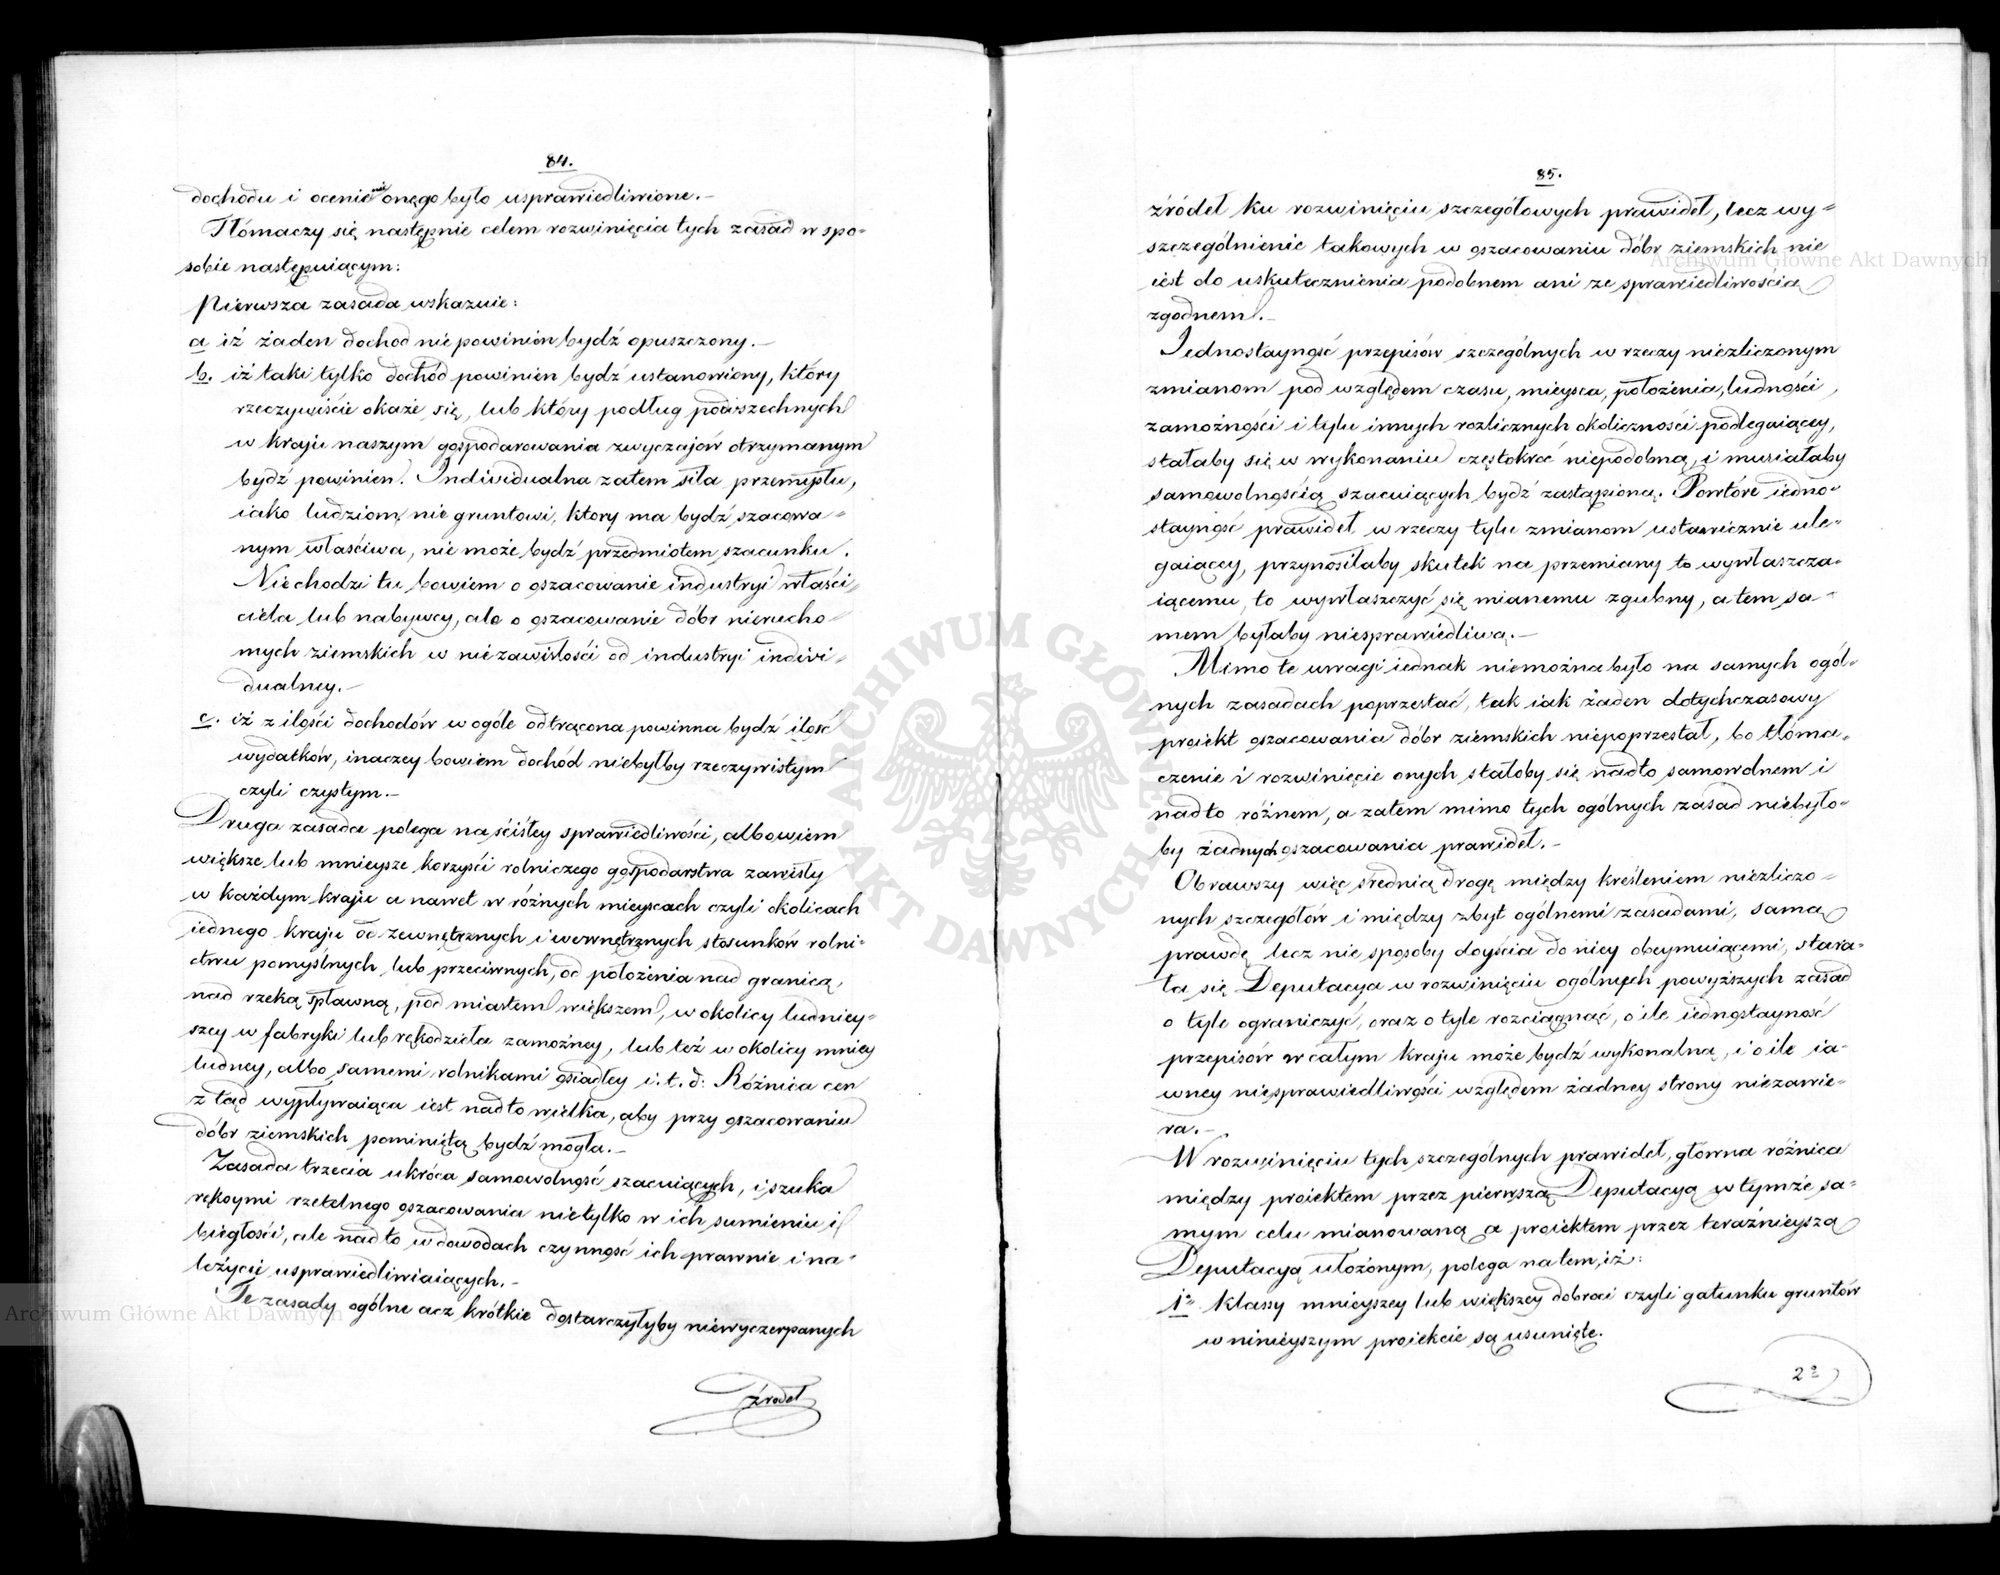 84.
dochodu i ocenienie onego było usprawiedliwione.—
Tłómaczy się następnie celem rozwinięcia tych zasad w spo-
sobie następuiącym:
Pierwsza zasada wskazuie:
a iż żaden dochod nie powinien bydź opuszczony.—
b. iż taki tylko dochód powinien bydź ustanowiony, który
rzeczywiście okaże się, lub który podług powszechnych
w kraju naszym gospodarowania zwyczajów otrzymanym
bydź powinien. Individualna zatem siła przemysłu,
iako ludziom, nie gruntowi, ktory ma bydź szacowa-
nym właściwa, nie może bydź przedmiotem szacunku.
Niechodzi tu bowiem o oszacowanie industryi właści-
ciela lub nabywcy, ale o oszacowanie dóbr nierucho-
mych ziemskich w niezawisłości od industryi indivi-
dualney.—
c. iż z ilości dochodów w ogóle odtrącona powinna bydź ilość
wydatków, inaczey bowiem dochód niebyłby rzeczywistym
czyli czystym.—
Druga zasada polega na ścisłey sprawiedliwości, albowiem
większe lub mnieysze korzyści rolniczego gospodarstwa zawisły
w każdym kraju a nawet w różnych mieyscach czyli okolicach
iednego kraju od zewnętrznych i wewnętrznych stosunków rolni-
ctwu pomyślnych lub przeciwnych, od położenia nad granicą,
nad rzeką spławną, pod miastem większem, w okolicy ludniey-
szey w fabryki lub rękodzieła zamożney, lub też w okolicy mniey
ludney, albo samemi rolnikami osiadłey i.t.d: Różnica cen
z tąd wypływaiąca iest nadto wielka, aby przy oszacowaniu
dóbr ziemskich pominiętą bydź mogła.—
Zasada trzecia ukróca samowolność szacuiących, i szuka
rękoymi rzetelnego oszacowania nietylko w ich sumieniu i
biegłości, ale nadto w dowodach czynność ich prawnie i na-
leżycie usprawiedliwiaiących.—
Te zasady ogólne acz krótkie dostarczyłyby niewyczerpanych
źrodeł
85.
źródeł ku rozwinięciu szczegółowych prawideł, lecz wy-
szczególnienie takowych w oszacowaniu dóbr ziemskich nie
iest do uskutecznienia podobnem ani ze sprawiedliwościa
zgodnem.—
Jednostayność przepisów szczególnych w rzeczy niezliczonym
zmianom pod względem czasu, mieysca, położenia, ludności,
zamożności i tylu innych rozlicznych okoliczności podlegaiącey,
stałaby się w wykonaniu częstokroć niepodobną, i musiałaby
samowolnością szacuiących bydź zastąpioną. Powtóre iedno-
stayność prawideł w rzeczy tylu zmianom ustawicznie ule-
gaiącey, przynosiłaby skutek na przemiany to wywłaszcza-
iącemu, to wywłaszczyć się mianemu zgubny, a tem sa-
mem byłaby niesprawiedliwą.—
Mimo te uwagi iednak niemożna było na samych ogól-
nych zasadach poprzestać, tak iak żaden dotychczasowy
proiekt oszacowania dóbr ziemskich niepoprzestał, bo tłóma-
czenie i rozwinięcie onych stałoby się nadto samowolnem i
nadto różnem, a zatem mimo tych ogólnych zasad niebyło-
by żadnych oszacowania prawideł.—
Obrawszy więc średnią drogę między kreśleniem niezliczo-
nych szczegółów i między zbyt ogólnemi zasadami, sama
prawdę lecz nie sposoby doyścia do niey obeymuiącemi, stara-
ła się Deputacya w rozwinięciu ogólnych powyższych zasad
o tyle ograniczyć, oraz o tyle rozciągnąć, o ile iednostayność
przepisów w całym kraju może bydź wykonalną, i o ile ia-
wney niesprawiedliwości względem żadney strony niezawie-
ra.—
W rozwinięciu tych szczególnych prawideł, główna różnica
między proiektem przez pierwszą Deputacyą w tymże sa-
mym celu mianowaną a proiektem przez teraźnieyszą
Deputacyą ułożonym, polega na tem, iż:
1o Klassy mnieyszey lub większey dobroci czyli gatunku gruntów
w ninieyszym proiekcie są usunięte.
2o
Archiwum Główne Akt Dawnych
Archiwum Główne Akt Dawnych
ARCHIWUM GŁÓWNE AKT DAWNYCH